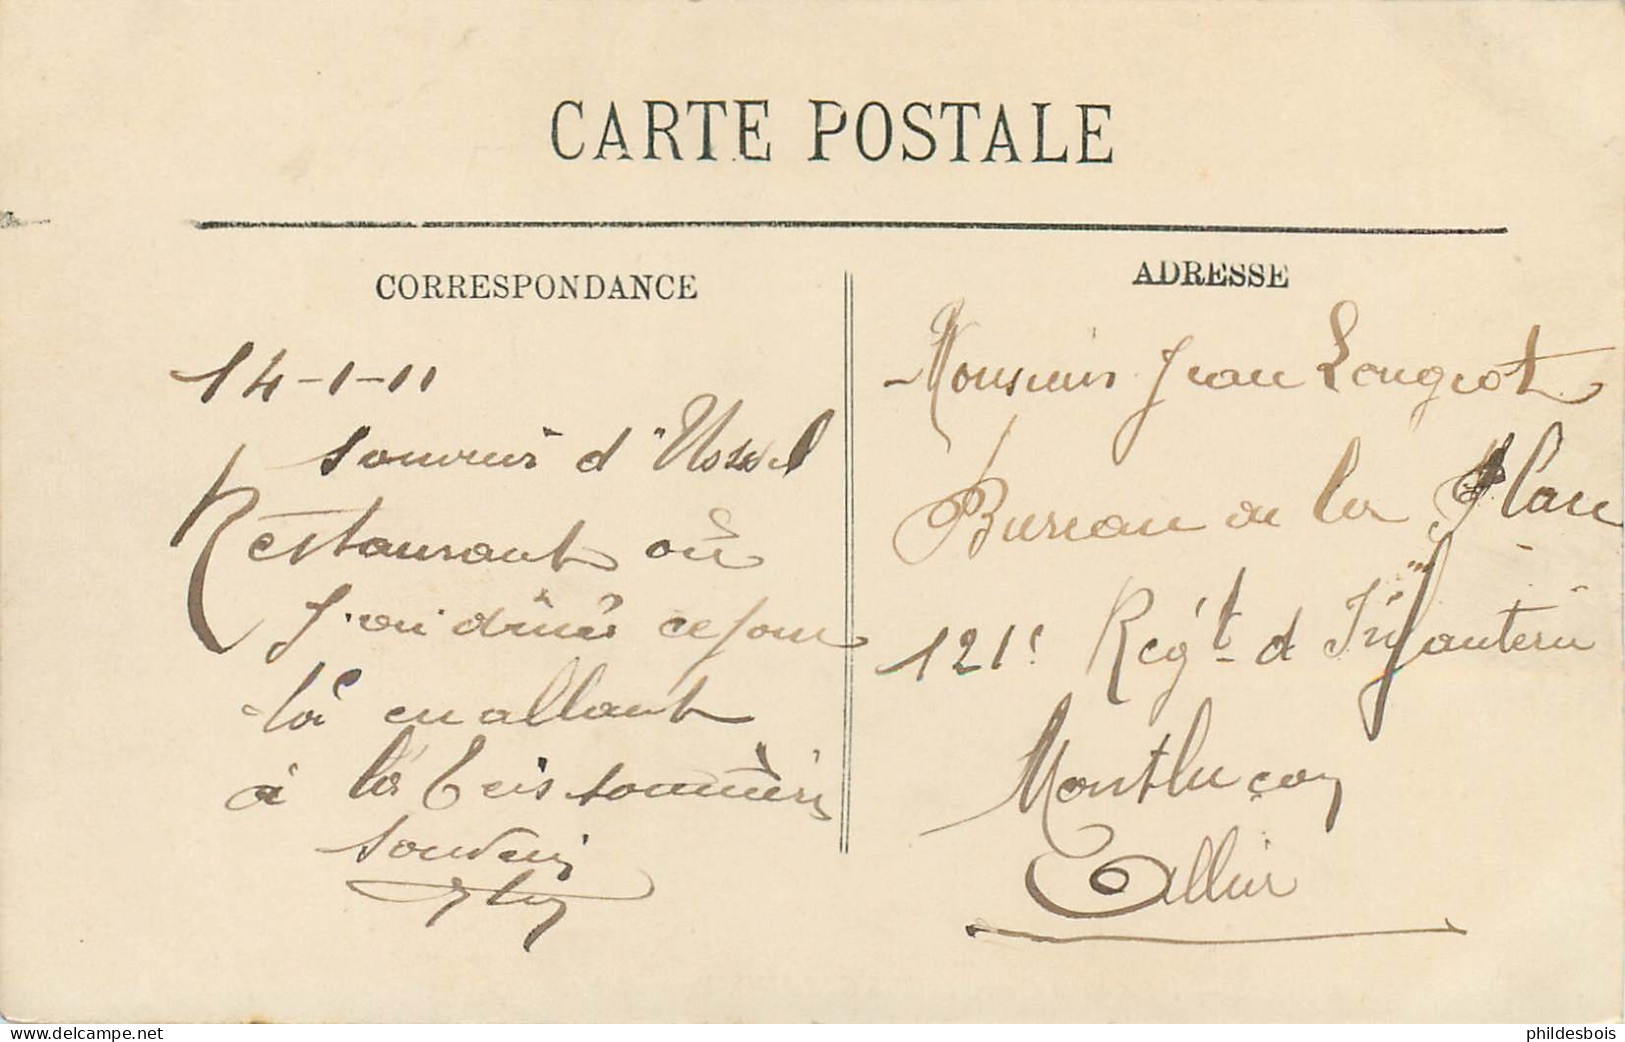 CARTE POSTALE
CORRESPONDANCE
14-1-11
Souvenir d'Ussel
Restaurant où
j'ai dîné ce jour
là en allant
à la
Souvenir
ADRESSE
Monsieur Jean Longeot
Bureau de la Place
121e Reg't d'Infanterie
Montluçon
Allier
www.delcampe.net
phildesbois